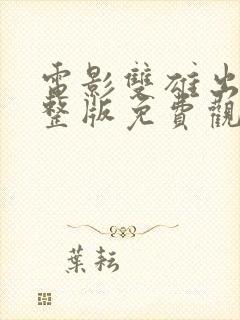 電影雙雄出
整版免費觀
葉耘